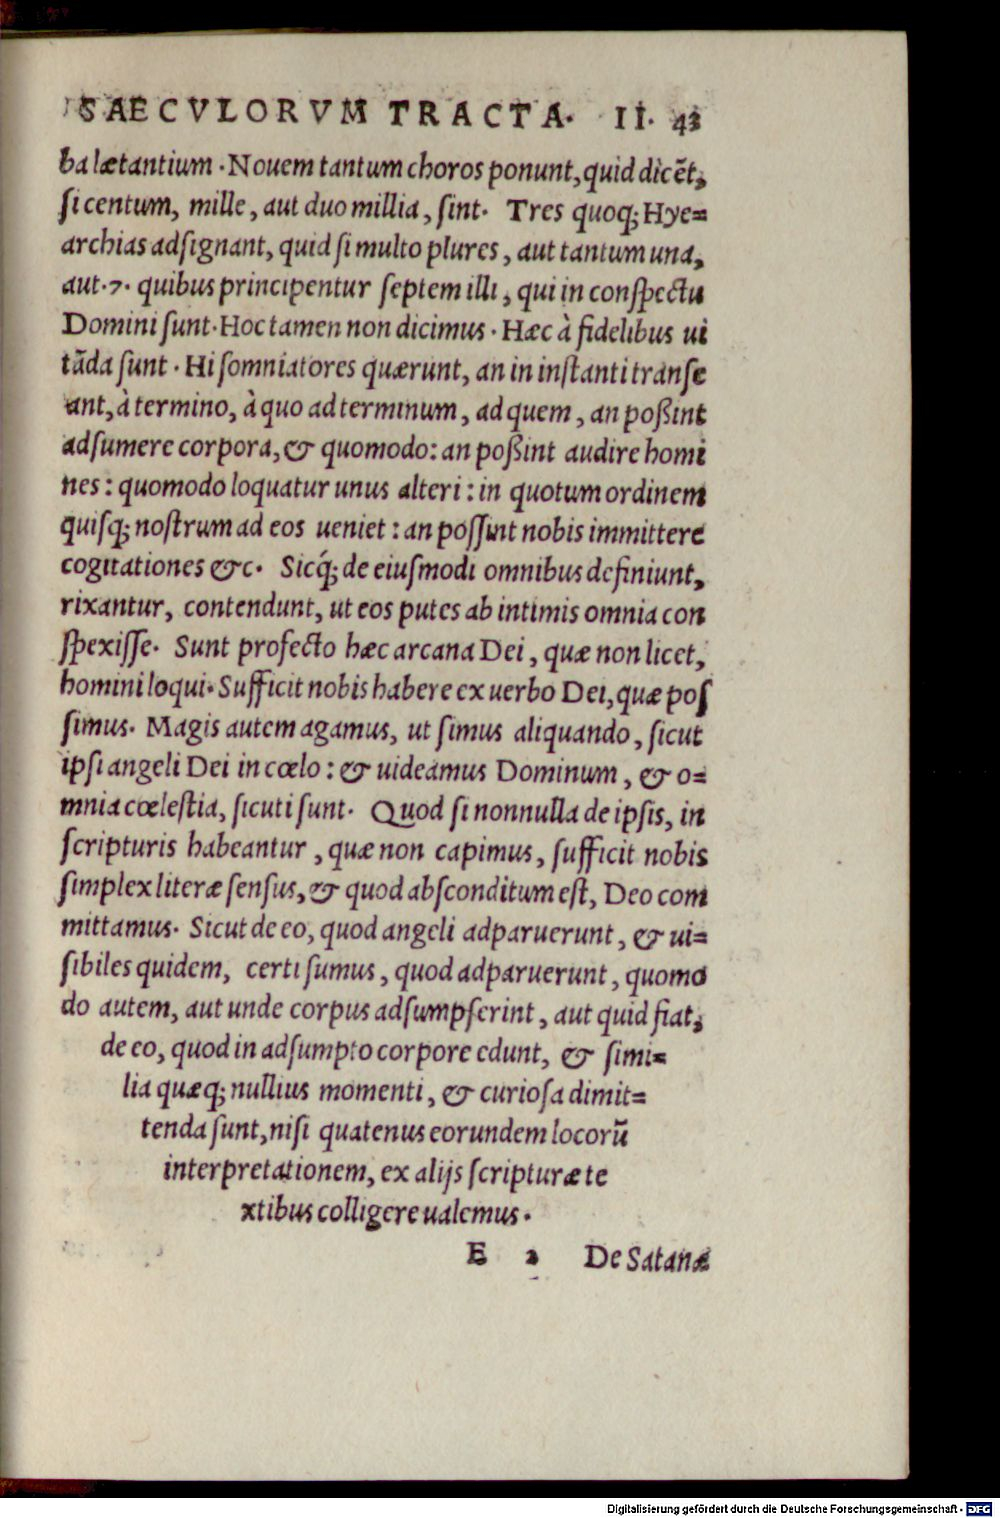 SAECVLORVM TRACTA. II. 43
ba lætantium. Nouem tantum choros ponunt, quid dicẽt,
ſi centum, mille, aut duo millia, ſint. Tres quoq; Hye=
archias adſignant, quid ſi multo plures, aut tantum una,
aut .7. quibus principentur ſeptem illi, qui in conſpectu
Domini ſunt. Hoc tamen non dicimus. Hæc à fidelibus ui
tãda ſunt. Hi ſomniatores quærunt, an in inſtanti tranſe
ant, à termino, à quo ad terminum, ad quem, an poßint
adſumere corpora, & quomodo: an poßint audire homi
nes: quomodo loquatur unus alteri: in quotum ordinem
quiſq; noſtrum ad eos ueniet: an poſſint nobis immittere
cogitationes &c. Sicq́; de eiuſmodi omnibus definiunt,
rixantur, contendunt, ut eos putes ab intimis omnia con
ſpexiſſe. Sunt profecto hæc arcana Dei, quæ non licet,
homini loqui. Sufficit nobis habere ex uerbo Dei, quæ poſ
ſimus. Magis autem agamus, ut ſimus aliquando, ſicut
ipſi angeli Dei in cœlo: & uideamus Dominum, & o=
mnia cœleſtia, ſicuti ſunt. Quod ſi nonnulla de ipſis, in
ſcripturis habeantur, quæ non capimus, ſufficit nobis
ſimplex literæ ſenſus, & quod abſconditum eſt, Deo com
mittamus. Sicut de eo, quod angeli adparuerunt, & ui=
ſibiles quidem, certi ſumus, quod adparuerunt, quomo
do autem, aut unde corpus adſumpſerint, aut quid fiat,
de eo, quod in adſumpto corpore edunt, & ſimi=
lia quæq; nullius momenti, & curioſa dimit=
tenda ſunt, niſi quatenus eorundem locorũ
interpretationem, ex alijs ſcripturæ te
xtibus colligere ualemus.
E 2 De Satanæ
Digitalisierung gefördert durch die Deutsche Forschungsgemeinschaft - DFG